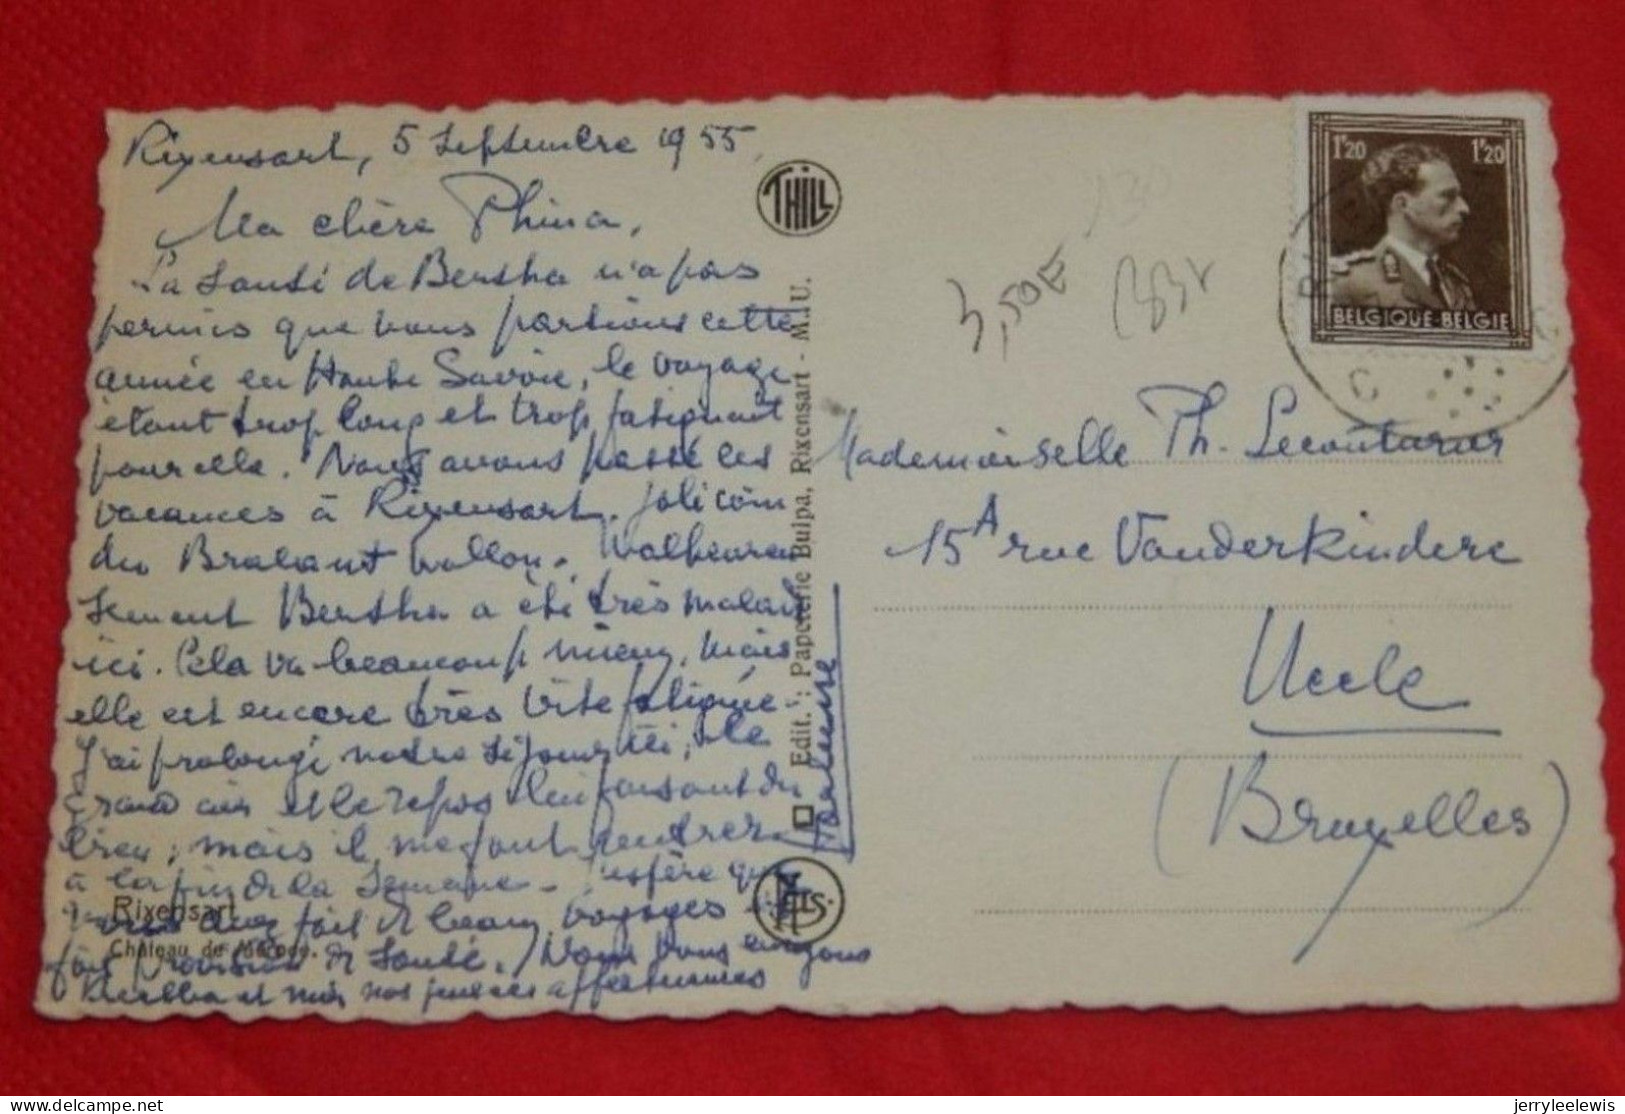 Rixensart, 5 Septembre 1955.
Ma chère Phina,
La santé de Bertha n'a pas
permis que nous partions cette
année en Haute Savoie, le voyage
étant trop long et trop fatiguant
pour elle. Nous avons passé ces
vacances à Rixensart. Joli coin
du Brabant wallon. Malheureu
sement Bertha a été très malade
ici. Cela va beaucoup mieux, mais
elle est encore très vite fatiguée.
J'ai prolongé notre séjour ici, le
grand air et le repos lui faisant du
bien; mais il me faut rentrer
à la fin de la semaine - J'espère que
vous avez fait de beaux voyages -
fait provision de santé. Nous vous envoyons
Bertha et moi nos pensées affectueuses
Rixensart
Château de Merode.
THILL
Edit.: Papeterie Bulpa, Rixensart - M.U.
NELS
1'20 1'20
BELGIQUE-BELGIE
3,50E
Mademoiselle Th. Lecouturier
15A rue Vanderkindere
Uccle
(Bruxelles)
delcampe.net
jerryleelewis